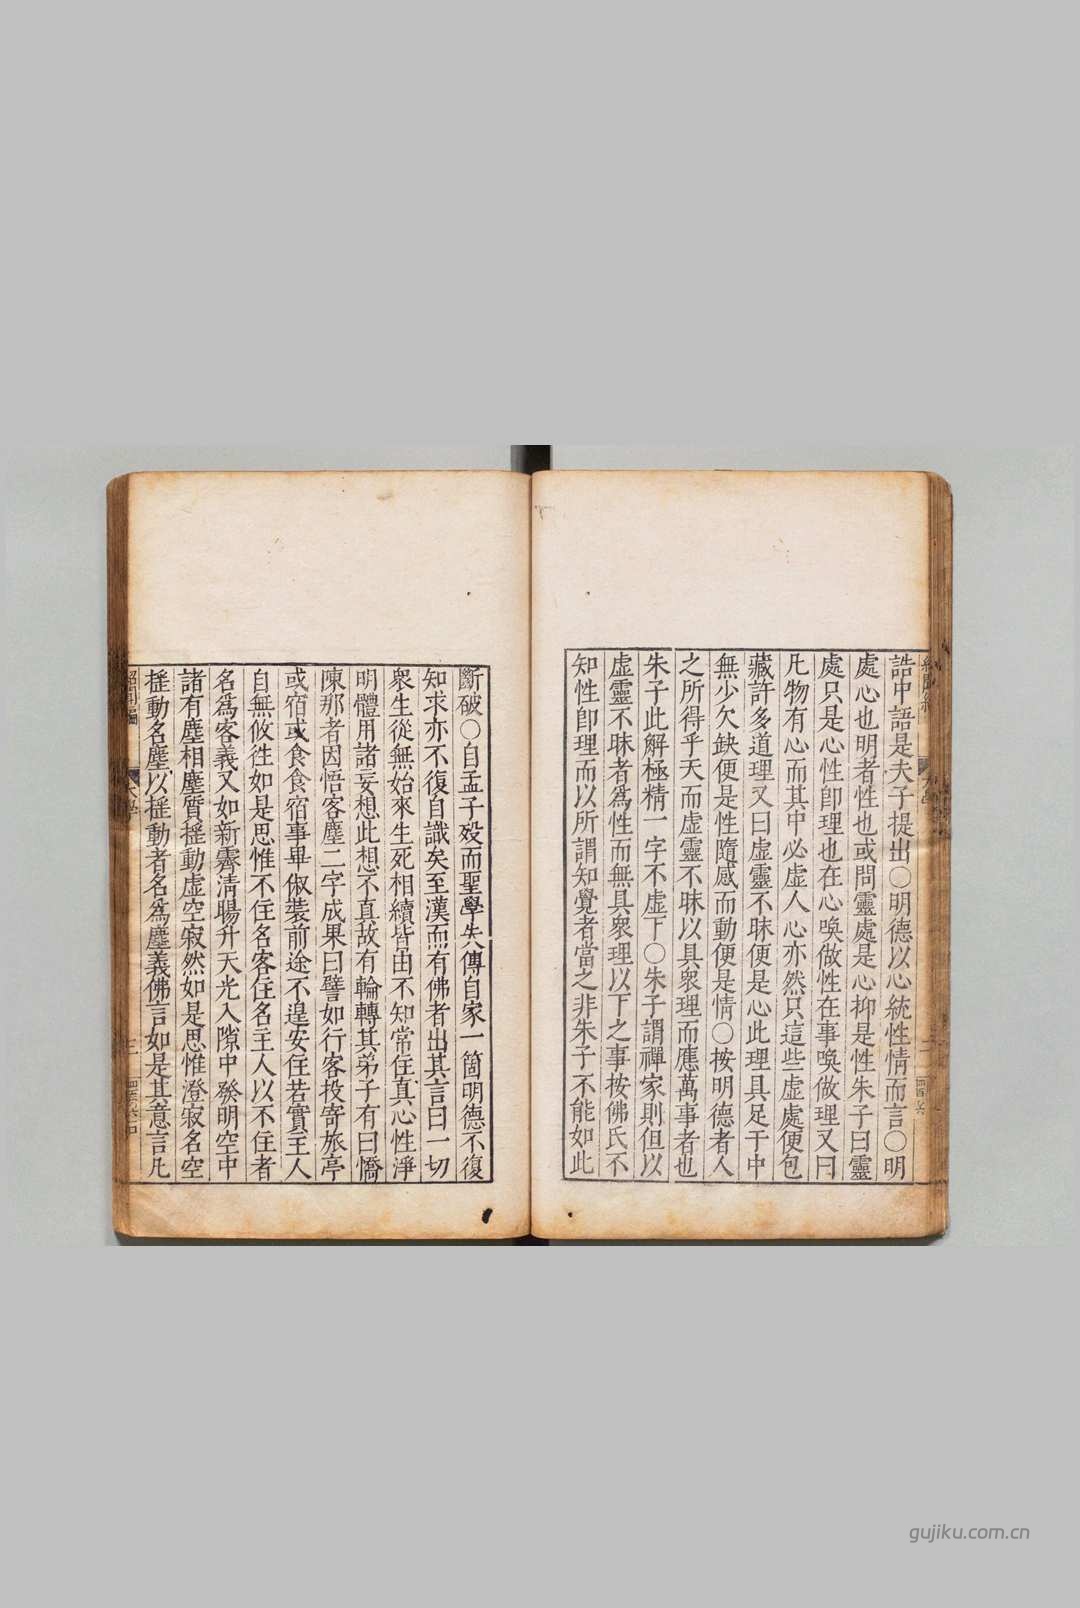 誥中語是夫子提出○明德以心統性情而言○明
處心也明者性也或問靈處是心抑是性朱子曰靈
處只是心性卽理也在心喚做性在事喚做理又曰
凡物有心而其中必虛人心亦然只這些虛處便包
藏許多道理又曰虛靈不昧便是心此理具足于中
無少欠缺便是性隨感而動便是情○按明德者人
之所得乎天而虛靈不昧以具衆理而應萬事者也
朱子此解極精一字不虛下○朱子謂禪家則但以
虛靈不昧者爲性而無具衆理以下之事按佛氏不
知性卽理而以所謂知覺者當之非朱子不能如此
斷破○自孟子殁而聖學失傳自家一箇明德不復
知求亦不復自識矣至漢而有佛者出其言曰一切
衆生從無始來生死相續皆由不知常住真心性淨
明體用諸妄想此想不真故有輪轉其弟子有曰憍
陳那者因悟客塵二字成果曰譬如行客投寄旅亭
或宿或食食宿事畢俶裝前途不遑安住若實主人
自無攸徃如是思惟不住名客住名主人以不住者
名爲客義又如新霽清暘升天光入隙中發明空中
諸有塵相塵質揺動虛空寂然如是思惟澄寂名空
揺動名塵以揺動者名爲塵義佛言如是其意言凡
紹聞編
大學
三
gujiku.com.cn